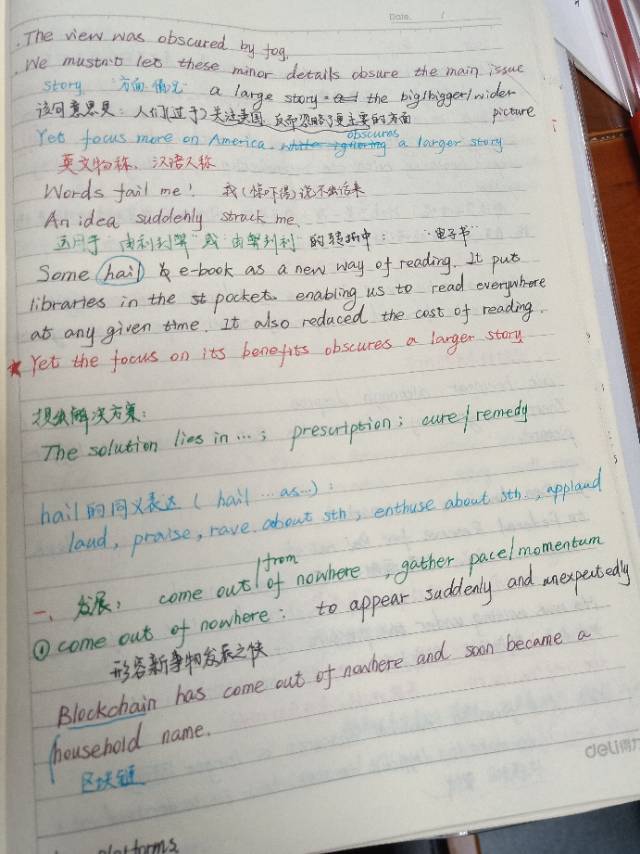 Date. /
. The view was obscured by fog.
. We mustn't let these minor details obsure the main issue
story "方面·情况" a large story = and the big/bigger/wider picture
该句意思是: 人们(过于)关注美国, 反而忽略了更主要的方面
Yet focus more on America obscures a larger story
英文物称, 汉语人称
Words fail me! 我(惊吓得)说不出话来
An idea suddenly struck me.
适用于"由利到弊"或"由弊到利"的转折中: "电子书"
Some hail e-book as a new way of reading. It put
libraries in the pocket. enabling us to read everywhere
at any given time. It also reduced the cost of reading.
* Yet the focus on its benefits obscures a larger story
提出解决方案:
The solution lies in …; prescription; cure/remedy
hail的同义表达 ( hail … as…) :
laud, praise, rave about sth, enthuse about sth., applaud
一、发展: come out of/from nowhere, gather pace/momentum
① come out of nowhere: to appear suddenly and unexpeutedly
形容新事物发展之快
Blockchain has come out of nowhere and soon became a
household name.
区块链
deli得力
platforms